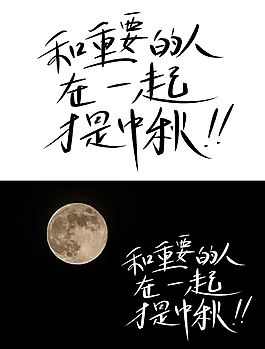 和重要的人
在一起
才是中秋!!
和重要的人
在一起
才是中秋!!